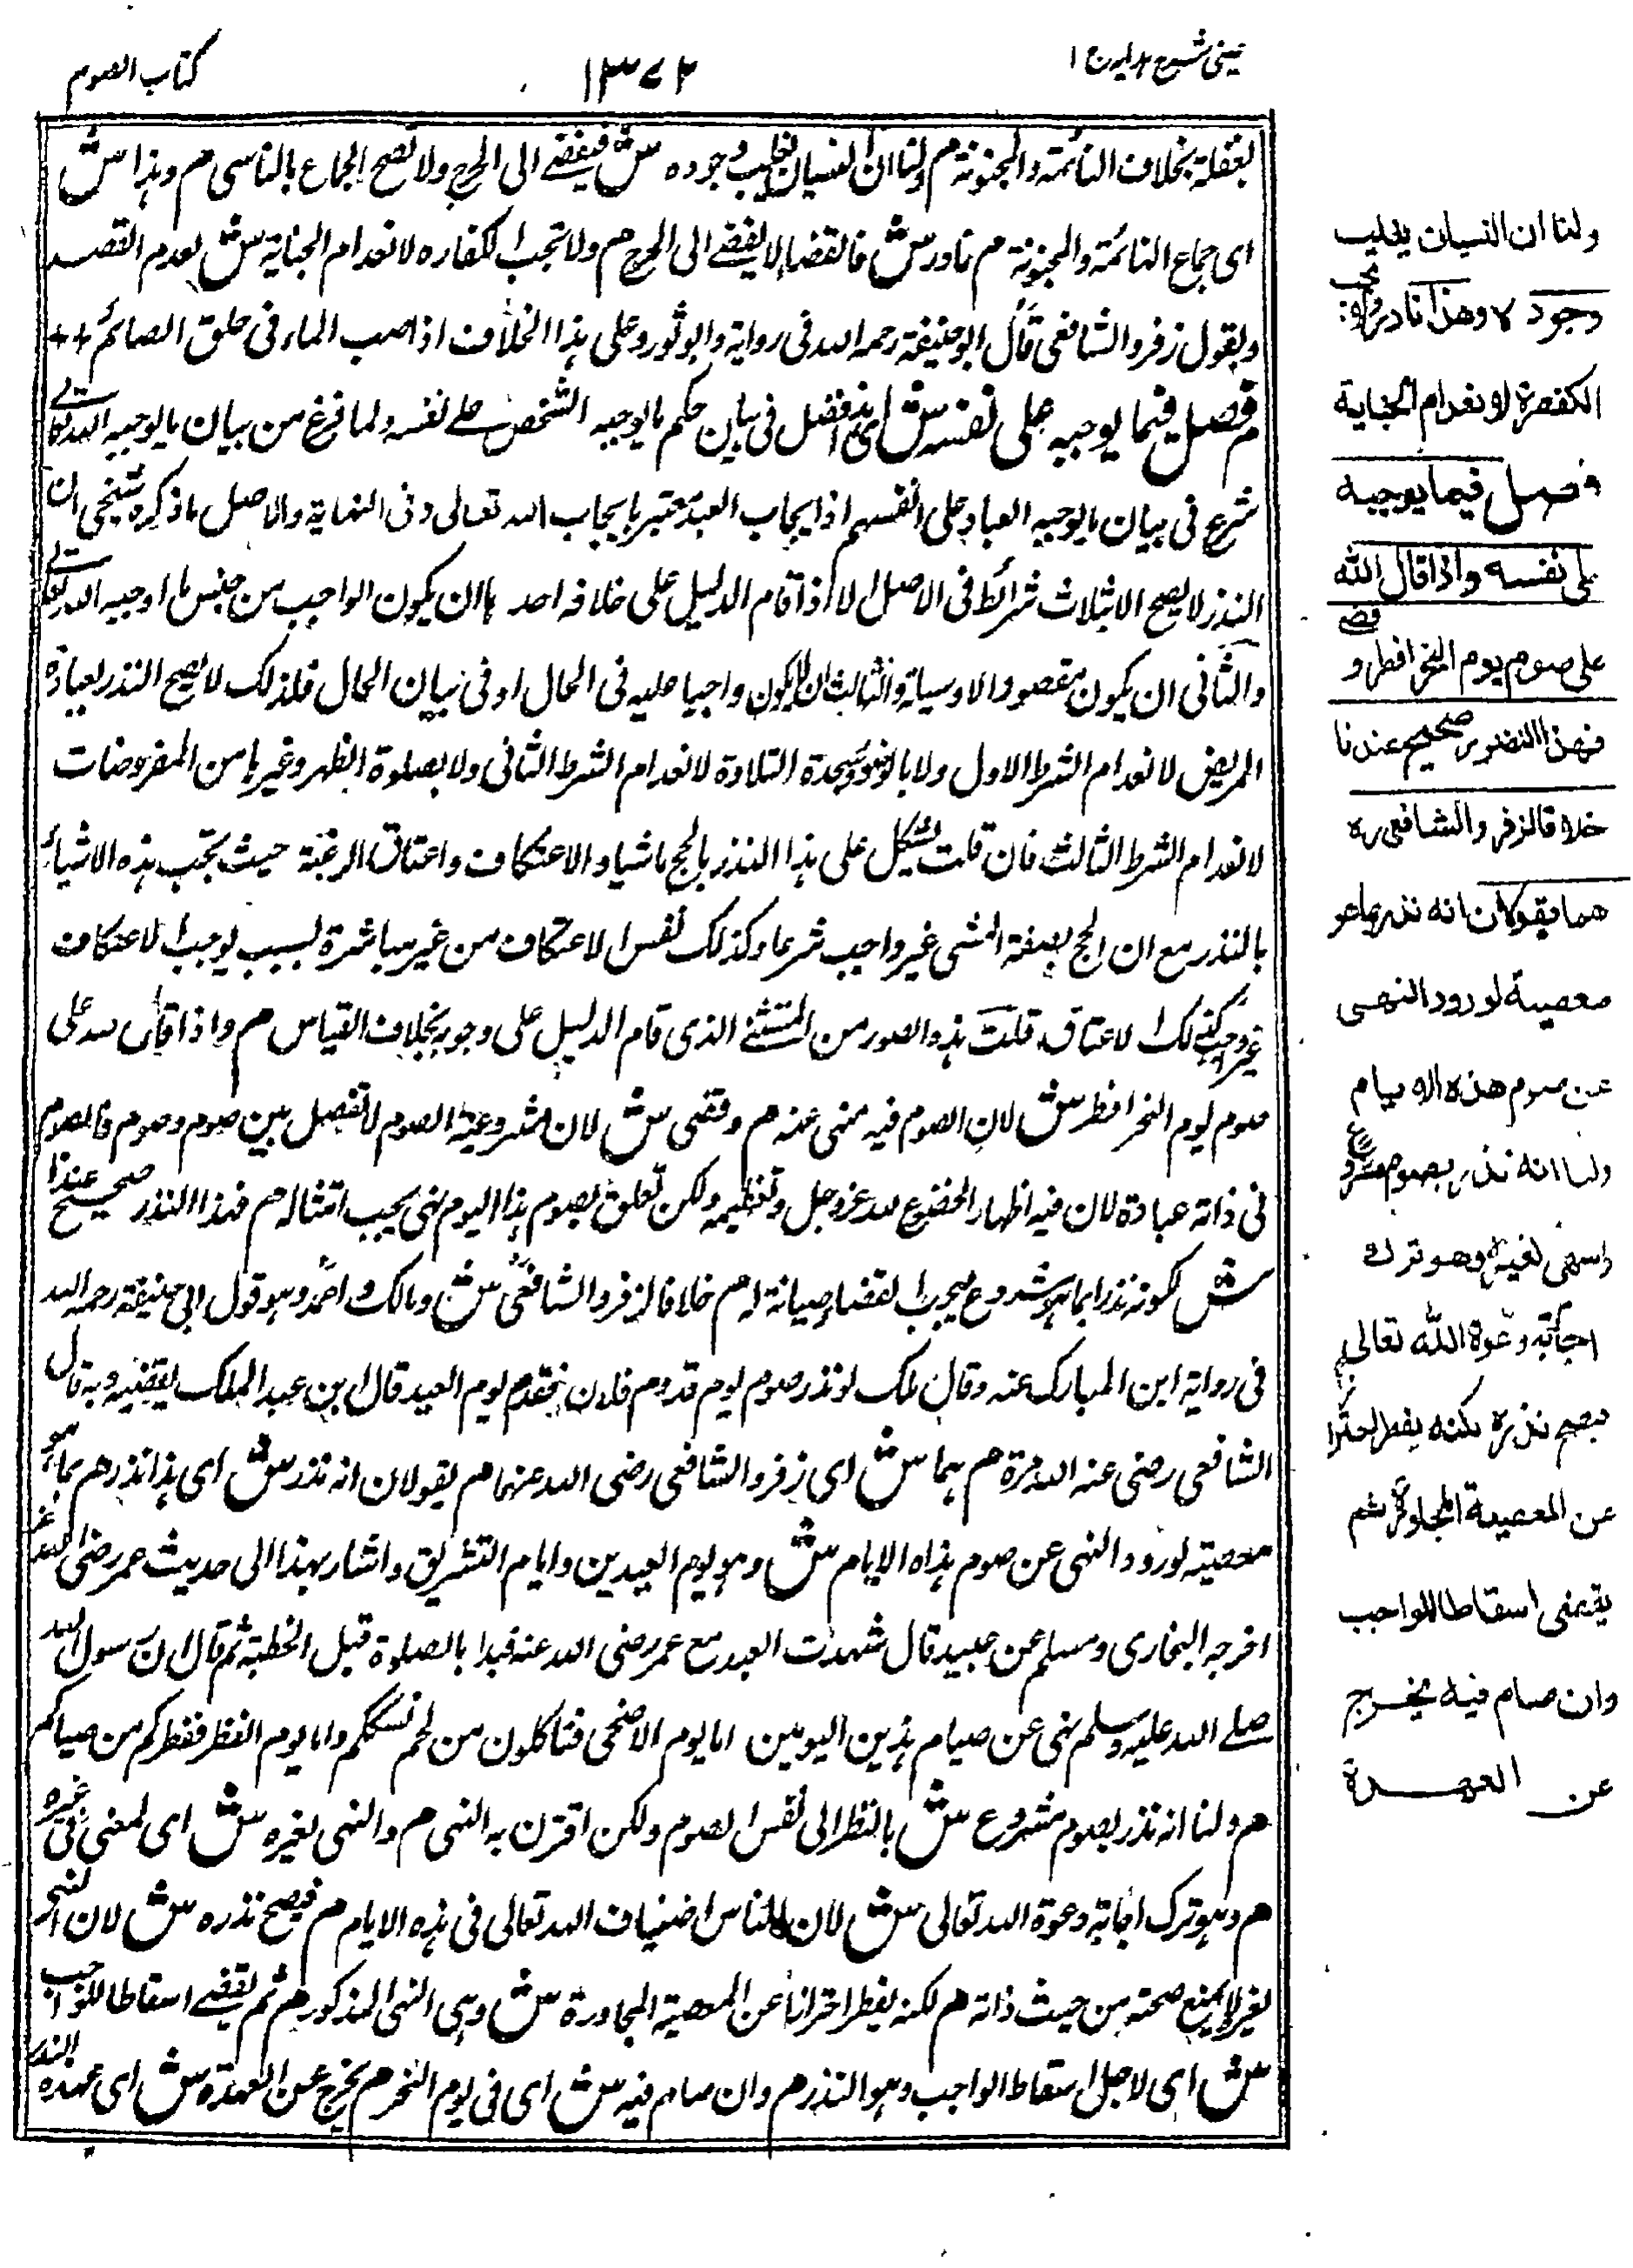 عینی شرح ہدایہ ج ا
١٣٧٢
کتاب الصوم
بغفلة بخلاف النائمة والمجنونة م ولنا ان النسیان یغلب وجوده ش فیفضے الی الحرج ولا تصح الجماع بالناسی م وہذا ش
ای جماع النائمة والمجنونة م نادر ش فالقضاء لا یفضے الی الحرج م ولا تجب الکفاره لانعدام الجنایة ش لعدم القصد
وبقول زفر والشافعی قال ابو حنیفة رحمہ اللہ فی روایة وابو ثور وعلی ہذا الخلاف اذا صب الماء فی حلق الصائم ++
م فصل فیما یوجبہ علی نفسہ ش ای ہذا فصل فی بیان حکم ما یوجبہ الشخص علے نفسہ ولما فرغ من بیان ما یوجبہ اللہ تعالے
شرع فی بیان ما یوجبہ العباد علی انفسہم اذ ایجاب العبد معتبر بایجاب اللہ تعالی وفی النہایة والاصل ما ذکره شیخی ان
النذر لا یصح الا بثلاث شرائط فی الاصل الا اذا قام الدلیل علی خلافہ احدہا ان یکون الواجب من جنس ما اوجبہ اللہ تعالے
والثانی ان یکون مقصودا لا وسیلة والثالث ان لا یکون واجبا علیہ فی الحال او فی بیان الحال فلذلک لا یصح النذر بعیادة
المریض لانعدام الشرط الاول ولا بالوضوء وسجدة التلاوة لانعدام الشرط الثانی ولا بصلوة الظہر وغیرہا من المفروضات
لانعدام الشرط الثالث فان قلت یشکل علی ہذا النذر بالحج ماشیا والاعتکاف واعتاق الرقبة حیث تجب ہذه الاشیاء
بالنذر مع ان الحج بصفة المشی غیر واجب شرعا وکذلک نفس الاعتکاف من غیر مباشرة لسبب یوجب الاعتکاف
غیر واجب کذلک الاعتاق قلت ہذه الصور من المستثنے الذی قام الدلیل علی وجوبہ بخلاف القیاس م واذا قال للہ علی
صوم یوم النحر افطر ش لان الصوم فیہ منہی عنہ م وقضی ش لان مشروعیة الصوم لا تفصل بین صوم وصوم فالصوم
فی ذاتہ عبادة لان فیہ اظہار الخضوع للہ عز وجل وتعظیمہ ولکن تعلق بصوم ہذا الیوم نہی یجب امتثالہ م فہذا النذر صحیح عندنا
ش لکونہ نذرا بما ہو مشروع فیجب القضاء صیانة لہ م خلافا لزفر والشافعی ش ومالک واحمد وہو قول ابی حنیفة رحمہ اللہ
فی روایة ابن المبارک عنہ وقال مالک لو نذر صوم یوم قدوم فلان فقدم یوم العید قال ابن عبد الملک یقضیہ وبہ قال
الشافعی رضی عنہ اللہ مرة م ہما ش ای زفر والشافعی رضی اللہ عنہما م یقولان انہ نذر ش ای ہذا نذر م بما ہو
معصیتہ لورود النہی عن صوم ہذاه الایام ش وہو یوم العیدین وایام التشریق واشار بہذا الی حدیث عمر رضی اللہ عنہ
اخرجہ البخاری ومسلم عن عبید قال شہدت العید مع عمر رضی اللہ عنہ فبدا بالصلوة قبل الخطبة ثم قال ان رسول اللہ
صلے اللہ علیہ وسلم نہی عن صیام ہذین الیومین اما یوم الاضحی فتاکلون من لحم نسککم واما یوم الفطر ففطرکم من صیامکم
م ولنا انہ نذر بصوم مشروع ش بالنظر الی نفس الصوم ولکن اقترن بہ النہی م والنہی لغیره ش ای لمعنی فی غیره
م وہو ترک اجابة دعوة اللہ تعالی ش لان الناس اضیاف اللہ تعالی فی ہذه الایام م فیصح نذره ش لان النہی
لغیره لا یمنع صحتہ من حیث ذاتہ م لکنہ یفطر احترازا عن المعصیة المجاورة ش وہی النہی المذکور م ثم یقضے اسقاطا للواجب
ش ای لاجل اسقاط الواجب وہو النذر م وان صام فیہ ش ای فی یوم النحر م یخرج عن العہدة ش ای عہدة النذر
ولنا ان النسیان یغلب
وجوده وهذا نادر ولا تجب
الکفرة لانعدام الجنایة
فصل فیما یوجبه
علی نفسه واذا قال الله
علی صوم یوم النحر افطر و قضے
فهذا النذر صحیح عندنا
خلافا لزفر والشافعی ره
هما یقولان انه نذر بما هو
معصیة لورود النهی
عن صوم هذه الایام
ولنا انه نذر بصوم مشروع
والنهی لغیره وهو ترك
اجابة دعوة الله تعالی
فیصح نذره لکنه یفطر احترازا
عن المعصیة المجاورة ثم
یقضی اسقاطا للواجب
وان صام فیه یخرج
عن العهدة